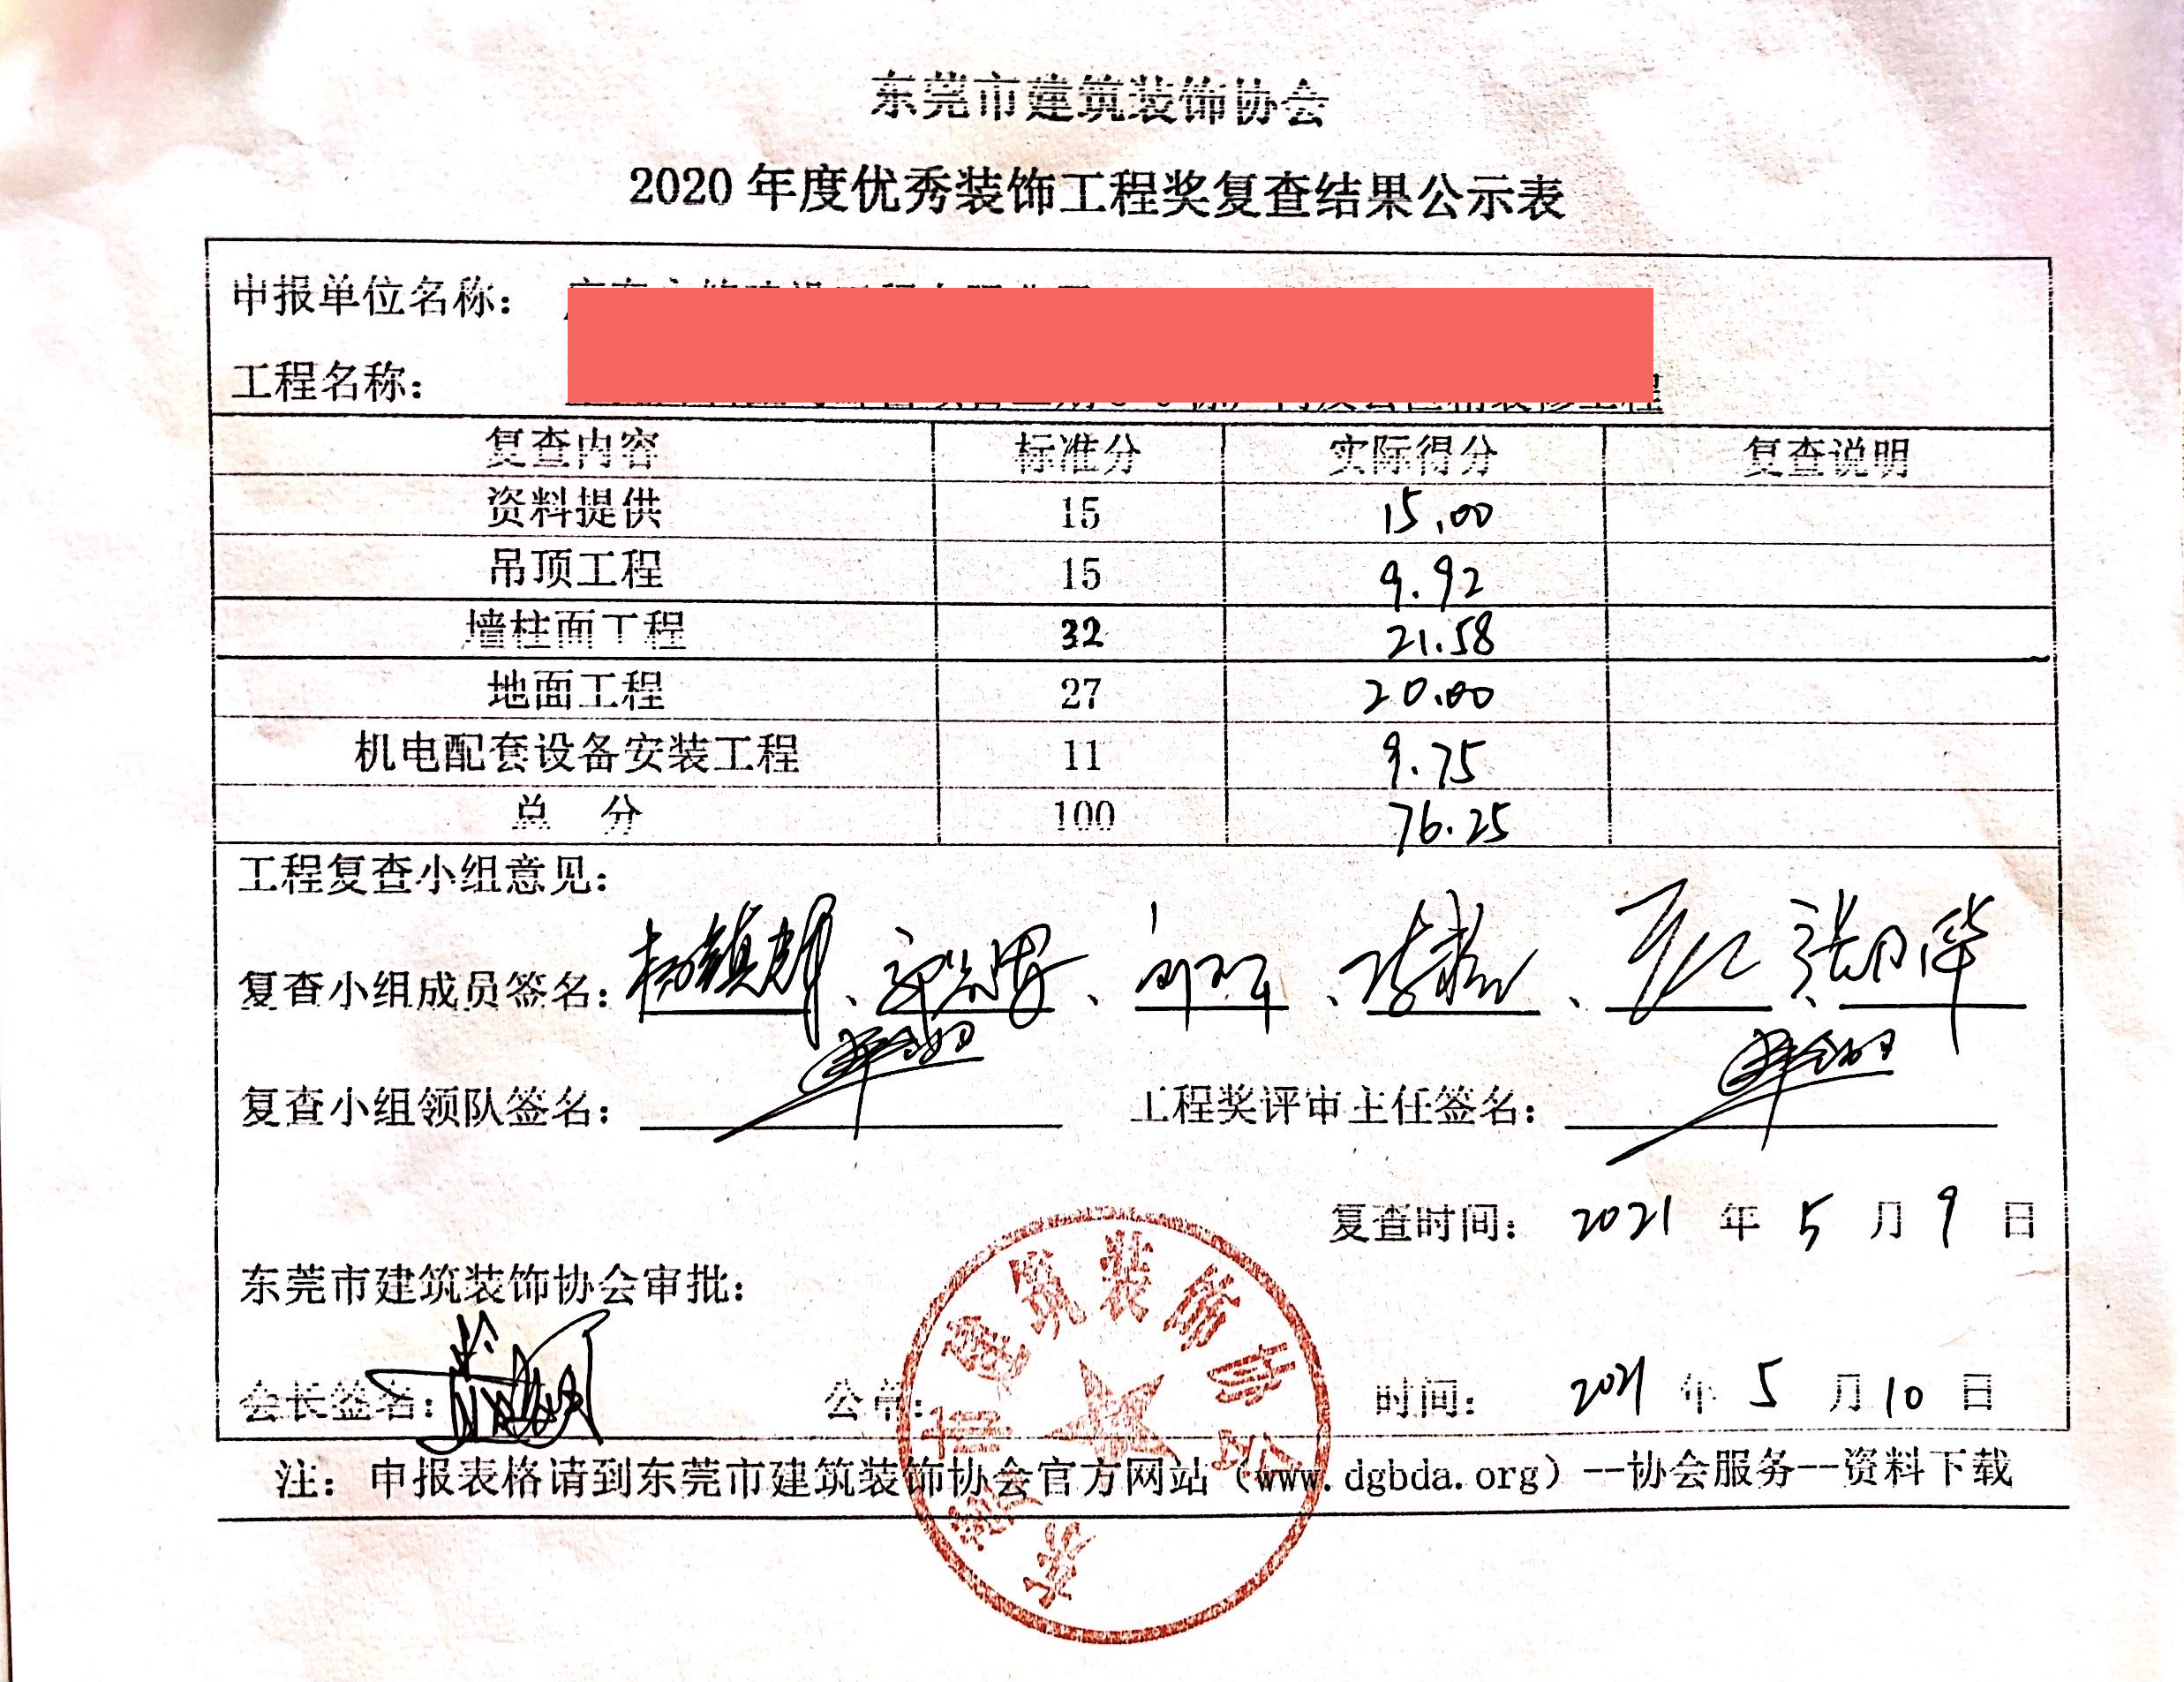 东莞市建筑装饰协会
2020 年度优秀装饰工程奖复查结果公示表
申报单位名称：
工程名称： 工程
复查内容 标准分 实际得分 复查说明
资料提供 15 15.00
吊顶工程 15 9.92
墙柱面工程 32 21.58
地面工程 27 20.00
机电配套设备安装工程 11 9.75
总 分 100 76.25
工程复查小组意见：
复查小组成员签名： 、 、 、 、 、
复查小组领队签名： 工程奖评审主任签名：
复查时间： 2021 年 5 月 9 日
东莞市建筑装饰协会审批：
会长签名： 公章： 时间： 2021 年 5 月 10 日
注：申报表格请到东莞市建筑装饰协会官方网站（www.dgbda.org）--协会服务--资料下载